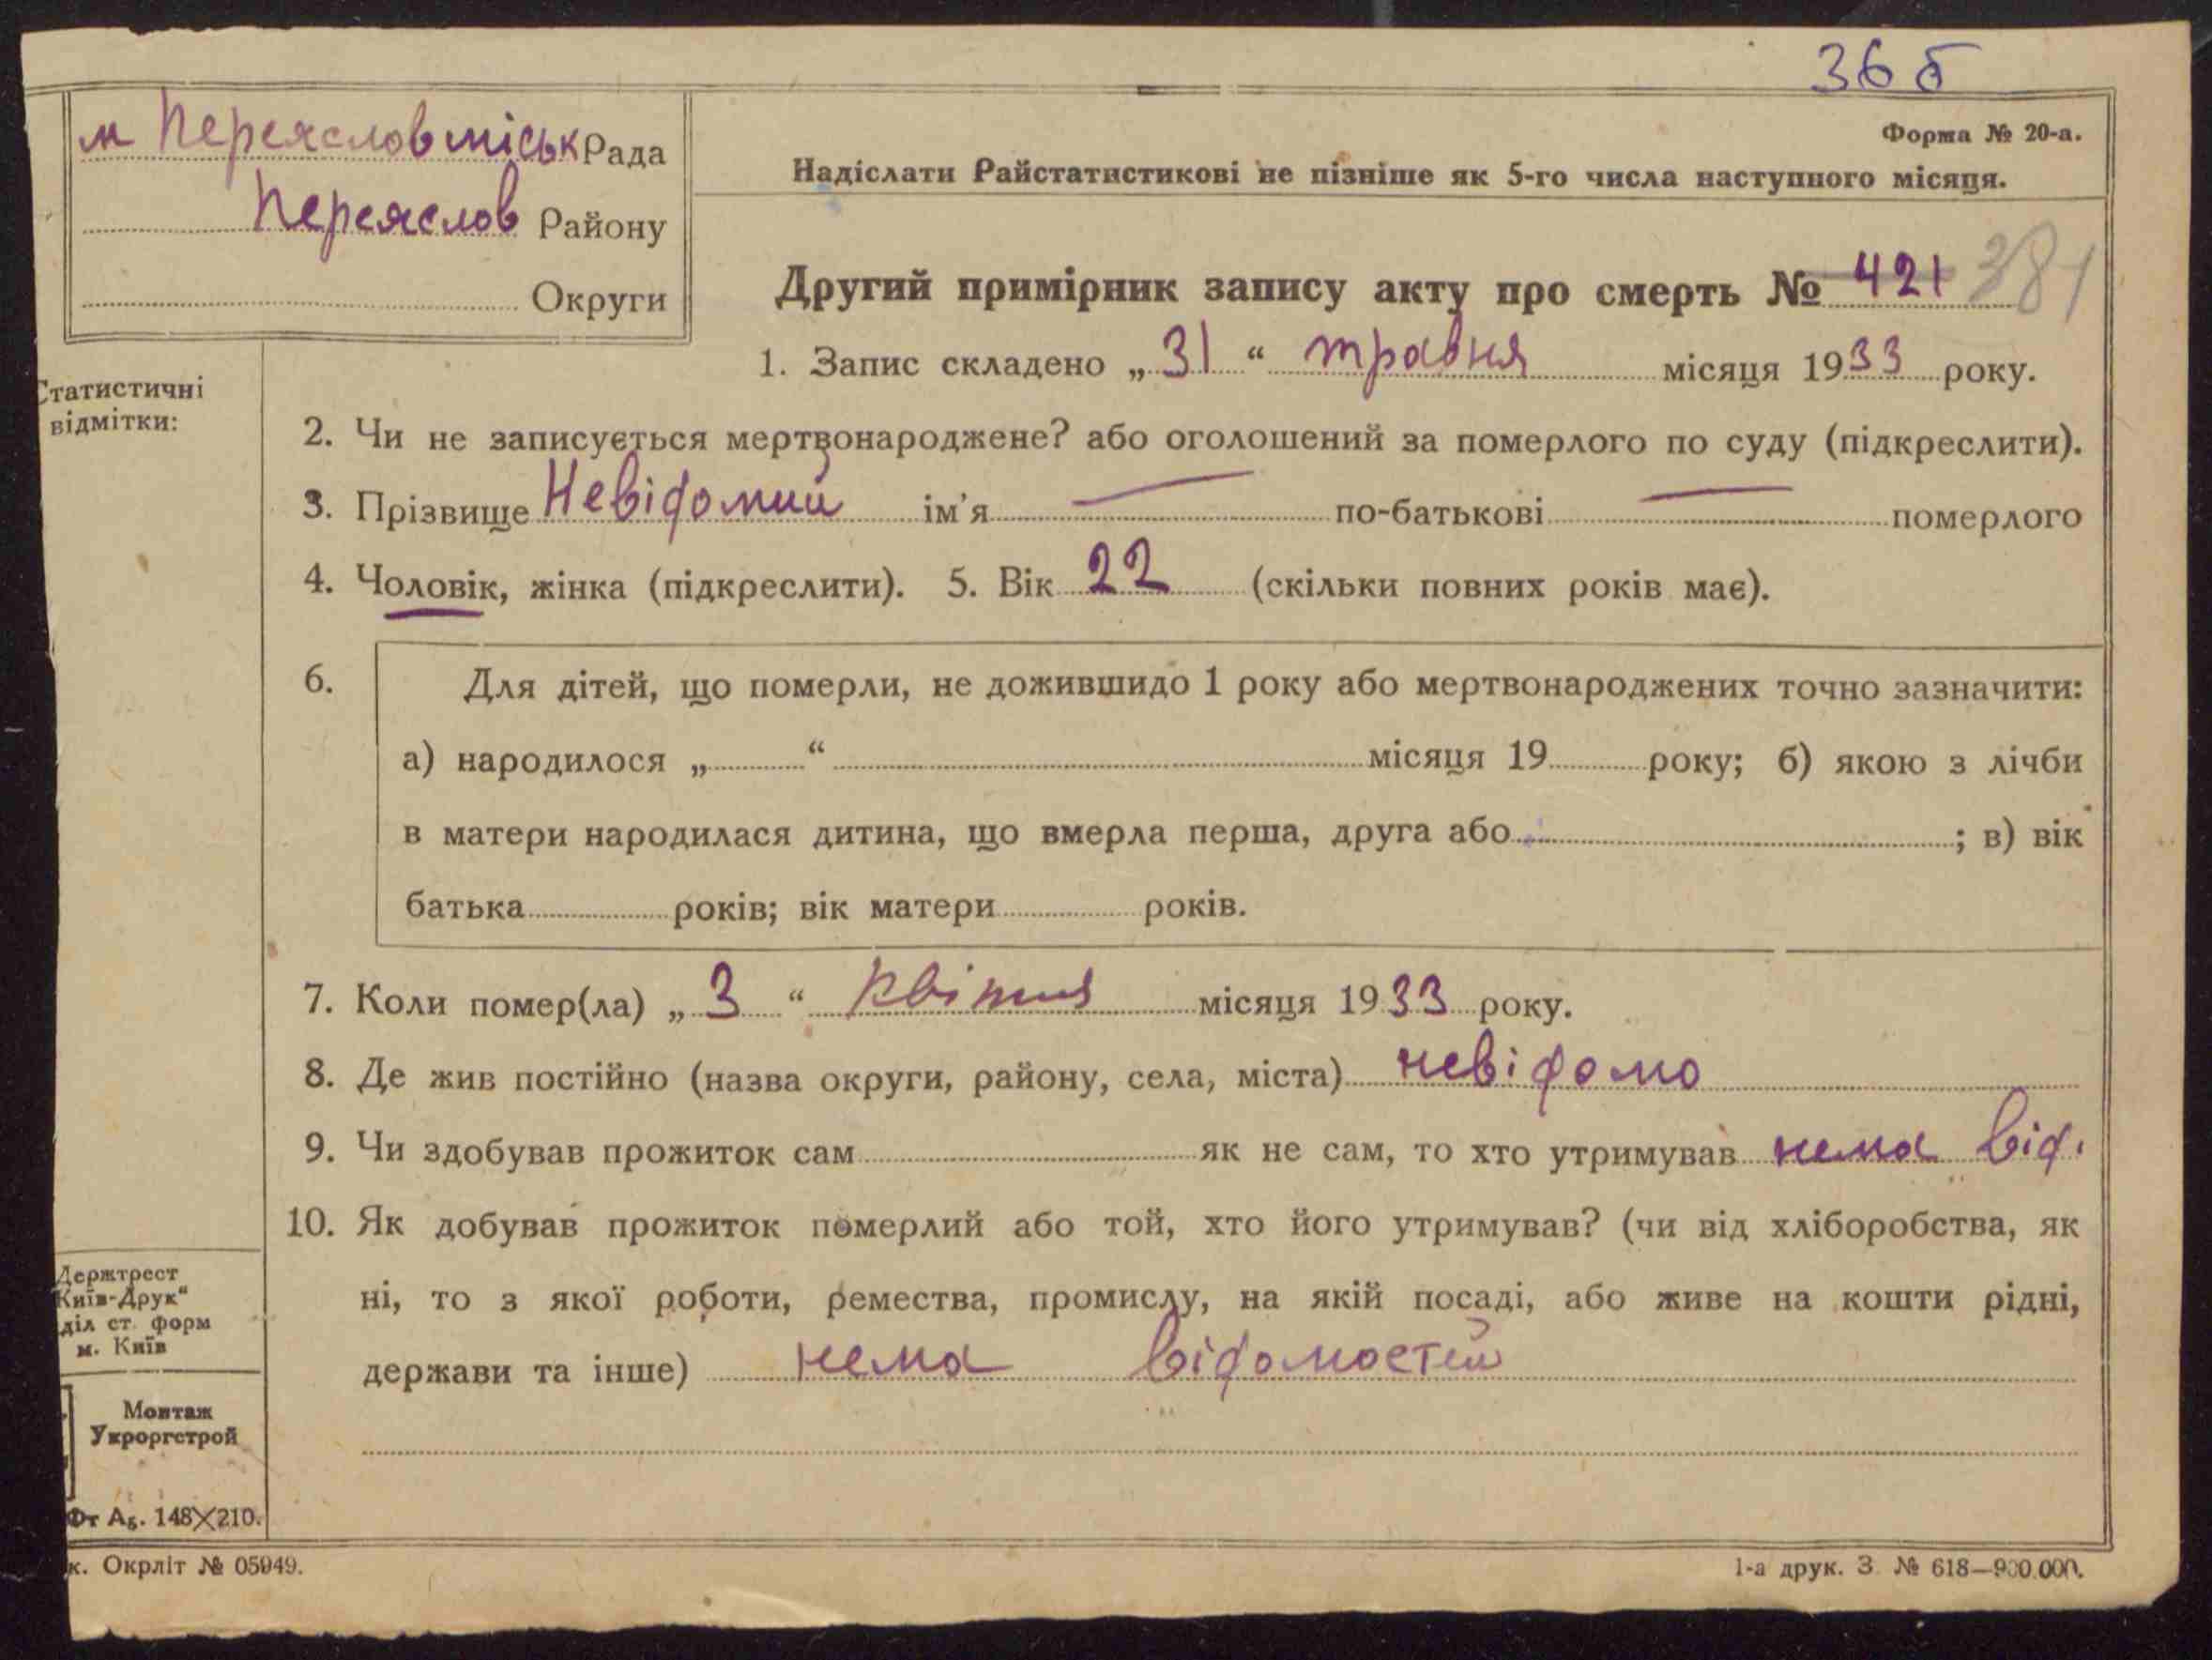 36 б
м Переяслов міськ Рада
Переяслов Району
Округи
Форма № 20-а.
Надіслати Райстатистикові не пізніше як 5-го числа наступного місяця.
Другий примірник запису акту про смерть № 421 381
1. Запис складено „31“ травня місяця 1933 року.
Статистичні
відмітки:
2. Чи не записується мертвонароджене? або оголошений за померлого по суду (підкреслити).
3. Прізвище Невідомий ім'я — по-батькові — померлого
4. Чоловік, жінка (підкреслити). 5. Вік 22 (скільки повних років має).
6. Для дітей, що померли, не дожившидо 1 року або мертвонароджених точно зазначити:
а) народилося „ “ місяця 19 року; б) якою з лічби
в матери народилася дитина, що вмерла перша, друга або ; в) вік
батька років; вік матери років.
7. Коли помер(ла) „3“ квітня місяця 1933 року.
8. Де жив постійно (назва округи, району, села, міста) невідомо
9. Чи здобував прожиток сам як не сам, то хто утримував нема від.
10. Як добував прожиток померлий або той, хто його утримував? (чи від хліборобства, як
ні, то з якої роботи, ремества, промислу, на якій посаді, або живе на кошти рідні,
держави та інше) нема відомостей
Держтрест
Київ-Друк“
діл ст. форм
м. Київ
Монтаж
Укроргстрой
Фт А5. 148X210.
к. Окрліт № 05949.
1-а друк. З. № 618—900.000.